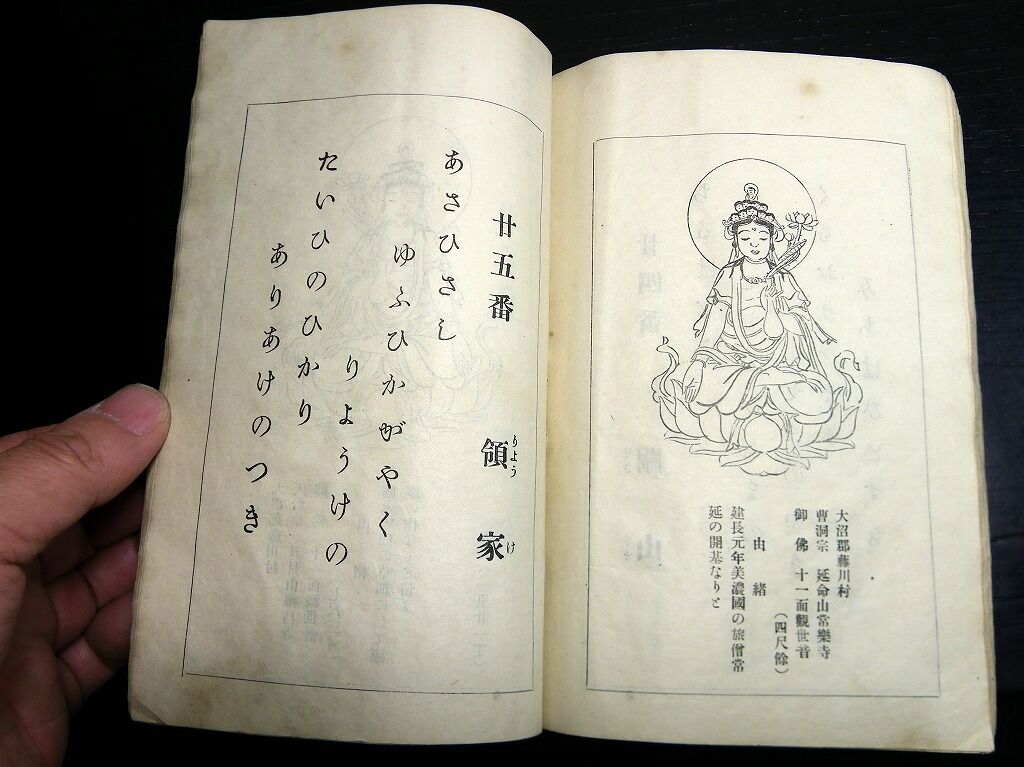 大沼郡藤川村
曹洞宗 延命山常樂寺
御佛 十一面觀世音
(四尺餘)
由緒
建長元年美濃國の旅僧常
延の開基なりと
廿五番 領家
りよう け
あさひさし
ゆふひかがやく
りようけの
たいひのひかり
ありあけのつき